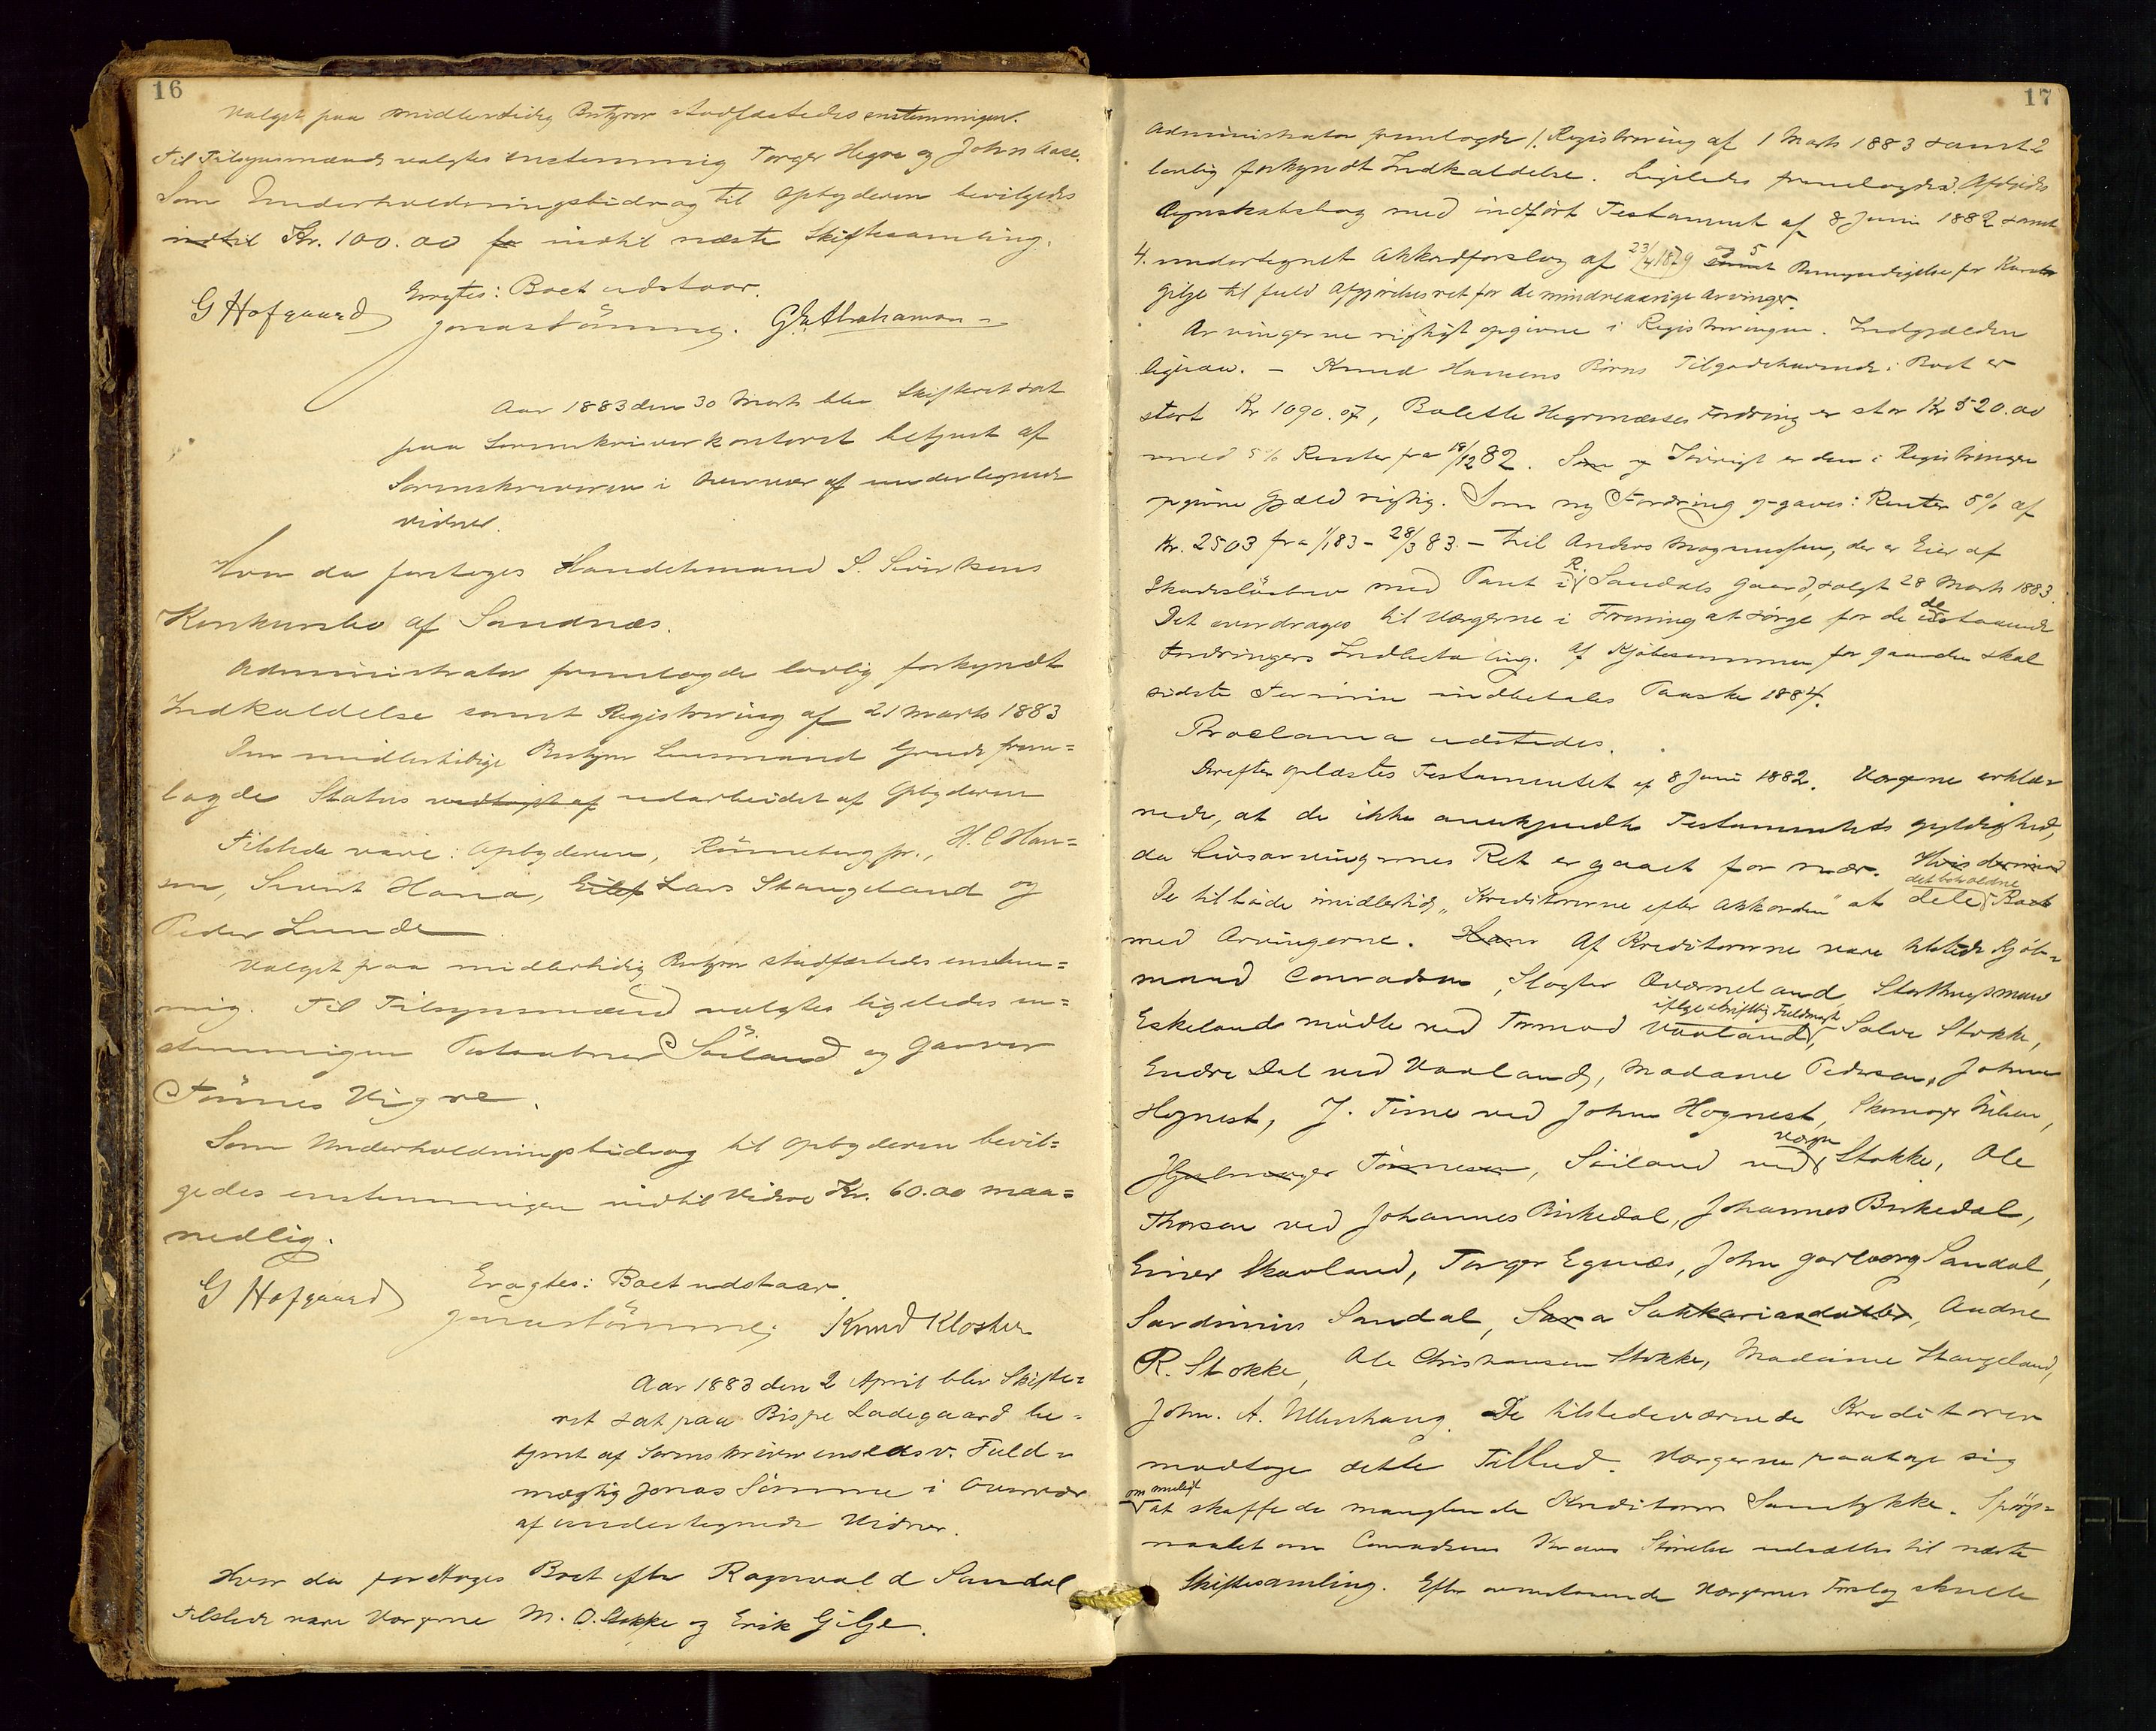 16
Valget paa midlertidig Bestyrer stadfæstedes enstemmigen.
Til Tilsynsmænd valgtes enstemmig Torger Hegre og John Aase.
Som Underholdningsbidrag til Opbyderen bevilgedes
indtil Kr. 100.00 for indtil næste Skiftesamling.
Eragtes: Boet udstaar.
G Hofgaard Jonas Sömme. G. Abrahamson
Aar 1883 den 30 Marts blev Skifteret sat
paa Sorenskriverkontoret betjent af
Sorenskriveren i Overvær af undertegnede
Vidner.
Hvor da foretoges Handelsmand S. Sivertsens
Konkursbo af Sandnæs.
Administrator fremlagde lovlig forkyndt
Indkaldelse samt Registrering af 21 Marts 1883
Den midlertidige Bestyrer Lensmand Grude frem=
lagde Status vedtaget af udarbeidet af Opbyderen
Tilstede vare: Opbyderen, Rönneberg jr., H. C Han=
sen, Sivert Hana, Eilef Lars Stangeland og
Peder Lunde
Valget paa midlertidig Bestyrer stadfæstedes enstem=
mig. Til Tilsynsmænd valgtes ligeledes en=
stemmigen Postaabner Söiland og Garver
Tönnes Vigre.
Som Underholdningsbidrag til Opbyderen bevil=
gedes enstemmigen indtil Videre Kr. 60.00 maa=
nedlig.
Eragtes: Boet udstaar.
G Hofgaard Jonas Sömme, Knud Kloster
Aar 1883 den 2 April blev Skifte=
ret sat paa Bispe Ladegaard be=
tjent af Sorenskriverens edsv. Fuld=
mægtig Jonas Sömme i Overvær
af undertegnede Vidner.
Hvor da foretoges Boet efter Ragnvald Sandal
Tilstede vare Værgerne M. O. Stokke og Erik Gilje.
17
Administrator fremlagde 1. Registrering af 1 Marts 1883 samt 2
lovlig forkyndt Indkaldelse. Ligeledes fremlagdes 3. Afdødes
Regnskabsbog med indfört Testament af 8 Juni 1882 samt
4. undertegnet Akkordforslag af 23/4 1879 samt og 5 Bemyndigelse for Kurator
Gilje til fuld Afgjörelsesret for de mindreaarige Arvinger.
Arvingerne rigtigt opgivne i Registreringen. Indgjælden
ligesaa. — Knud Hansens Börns Tilgodehavende i Boet er
stort Kr 1090.07, Bolette Hegrenæsses Fordring er stor Kr 520.00
med 5% Renter fra 18/12 82. Som ny Iövrigt er den i Registreringen
opgivne Gjæld rigtig. Som ny Fordring opgaves: Renter 5% af
Kr. 2503 fra 1/1 83 – 28/3 83 – til Anders Magnussen, der er Eier af
Skadeslösbrev med Pant i R. Sandals Gaard, solgt 28 Marts 1883.
Det overdrages til Værgerne i Forening at sörge for de udestaaende
Fordringers Indbetaling. Af Kjöbesummen for Gaarden skal
sidste Termin indbetales Paaske 1884.
Proclama udstedes.
Derefter oplæstes Testamentet af 8 Juni 1882. Værgerne erklæ=
rede, at de ikke anerkjendte Testamentets Gyldighed,
da Livsarvingernes Ret er gaaet for nær. Hvis dermed
De tilböde imidlertid „Kreditorerne efter Akkorden" at dele det beholdne Boet
med Arvingerne. Hans Af Kreditorerne vare tilstede Kjöb=
mand Conradsen, Slagter Oværneland, Storthingsmand
Eskeland mödte ved Tormod Vavland ifölge skriftlig Fuldmagt, Salve Stokke,
Endre Dal ved Vavland, Madame Pedersen, John
Hognest, J. Time ved John Hognest, Skomager Nilsen,
Hjulmager Tönnesen, Söiland ved Værge Stokke, Ole
Thorsen ved Johannes Birkedal, Johannes Birkedal,
Einer Skavland, Torger Egenæs, John Garborg Sandal,
Sardinius Sandal, Sara Sakkariasdatter, Andne
R. Stokke, Ole Christiansen Stokke, Madame Stangeland,
John. A. Ullenhaug. De tilstedeværende Kreditorer
modtoge dette Tilbud. Værgerne paatoge sig
om muligt at skaffe de manglende Kreditorers Samtykke. Spörgs=
maalet om Conradsens Kravs Störrelse udsættes til næste
Skiftesamling. Efter ovenstaaende Værgernes Forslag skulle